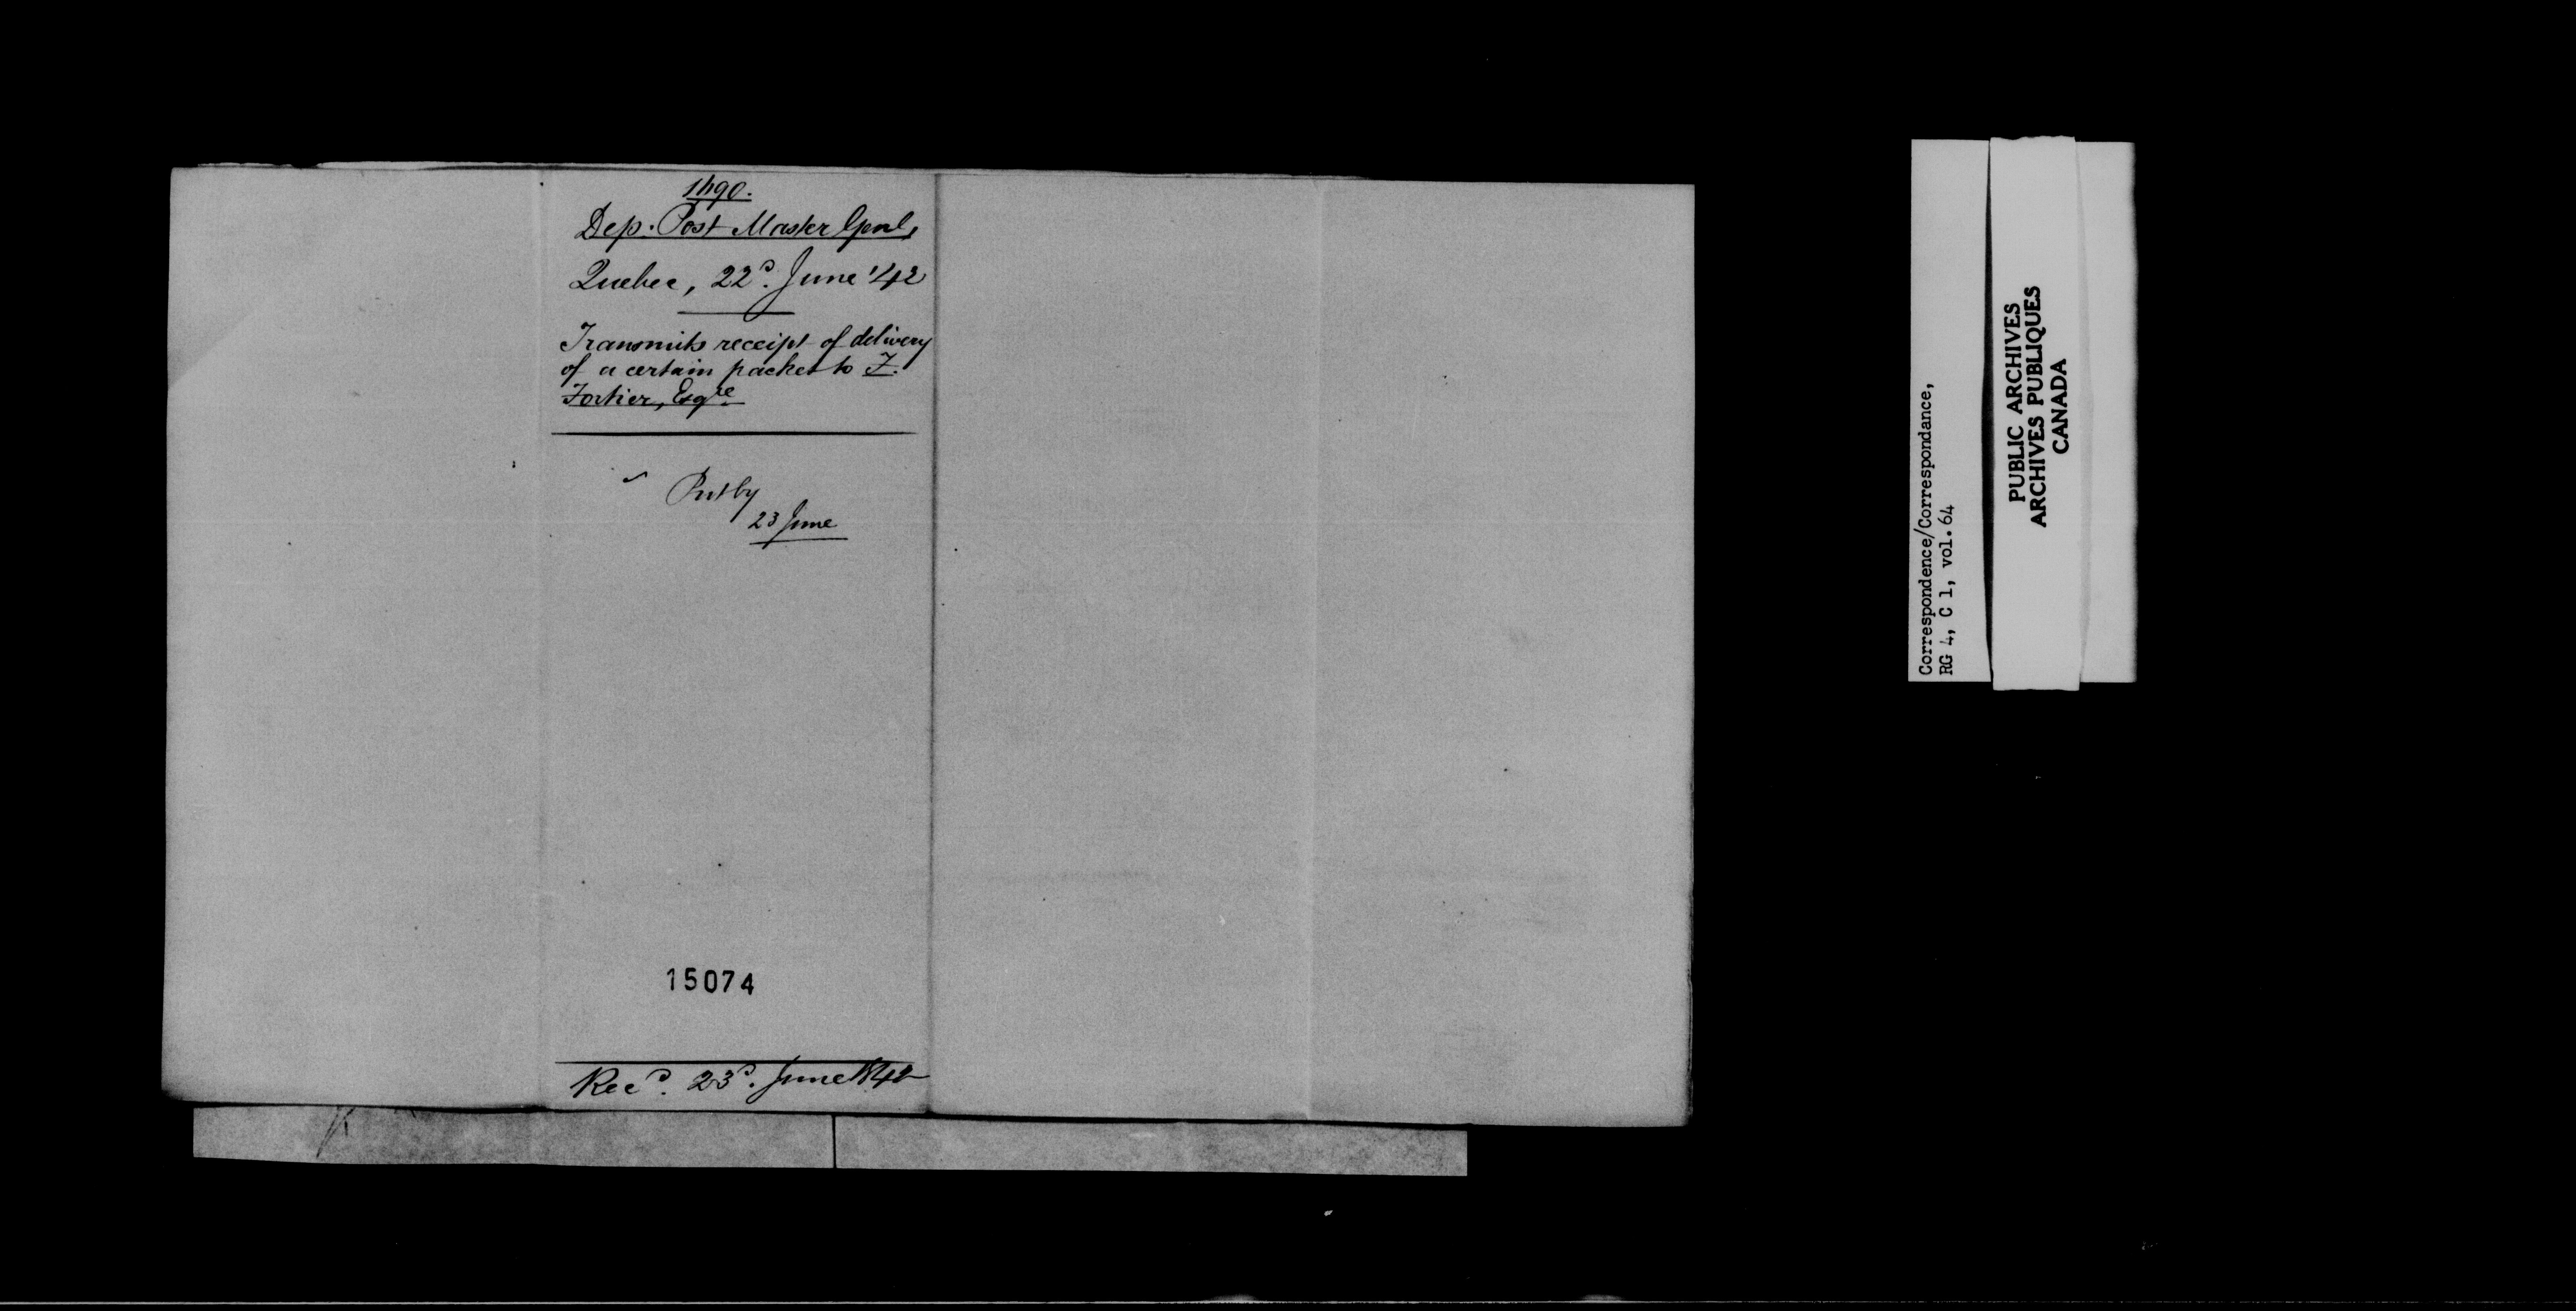 1490.
Dep. Post Master Genl,
Quebec, 22d. June '42
Transmits receipt of delivery
of a certain packet to F.
Fortier, Esqre
Put by
23 June
15074
Recd. 23d. June 1842
Correspondence/Correspondance,
RG 4, C 1, vol. 64
PUBLIC ARCHIVES
ARCHIVES PUBLIQUES
CANADA